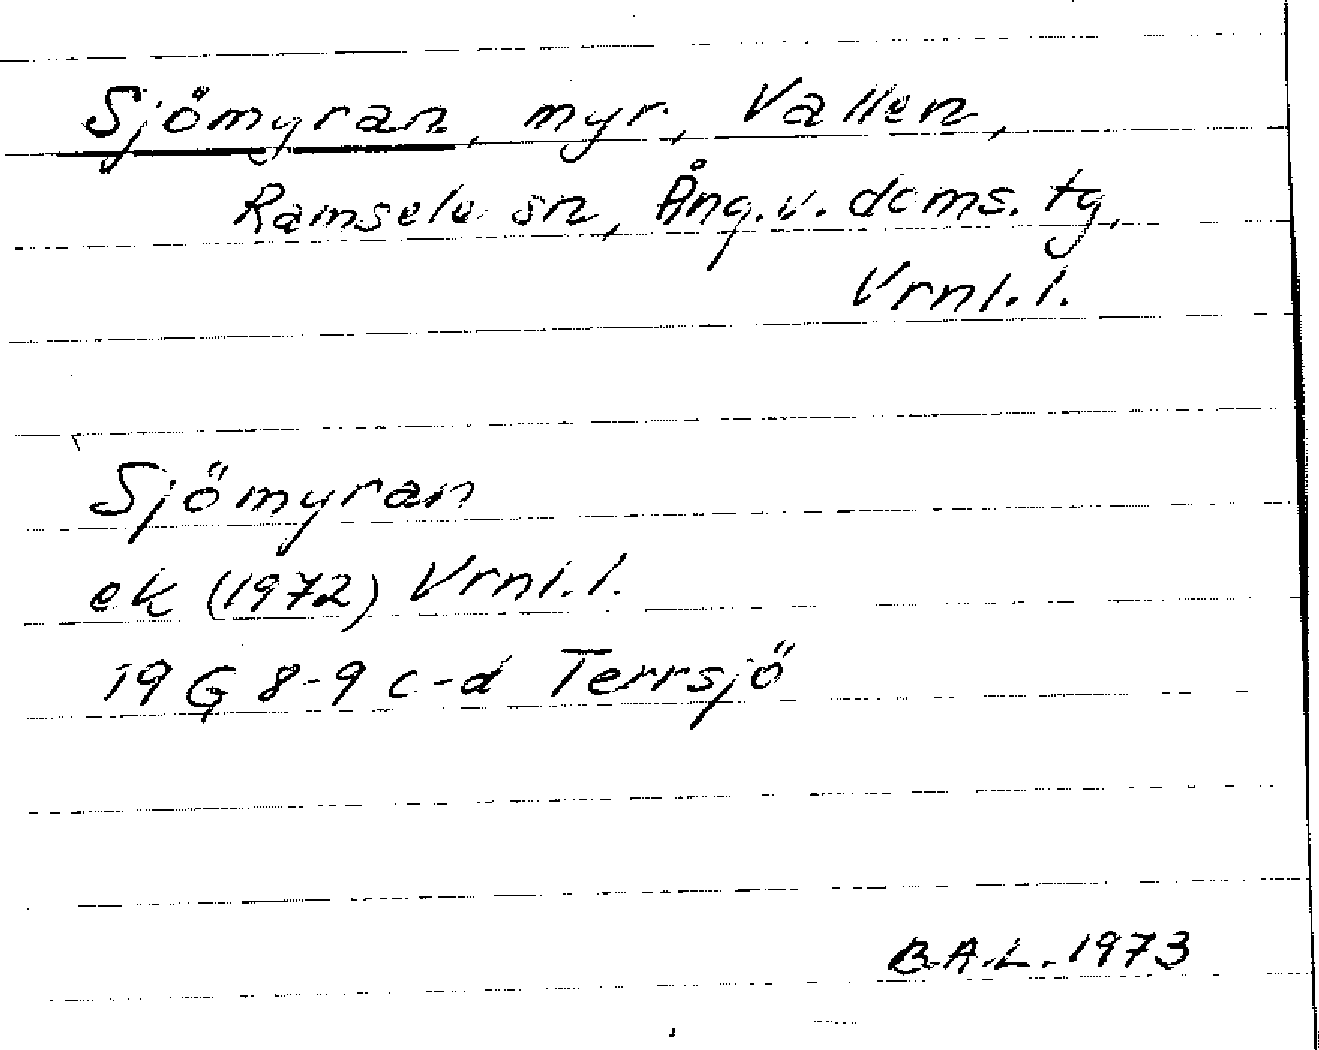 Sjömyran, myr, Vallen,
Ramsele sn, Ång.v. doms. tg,
Vrnl. l.
Sjömyran
ek (1972) Vrnl. l.
19 G 8-9 c-d Terrsjö
B.A.L. 1973